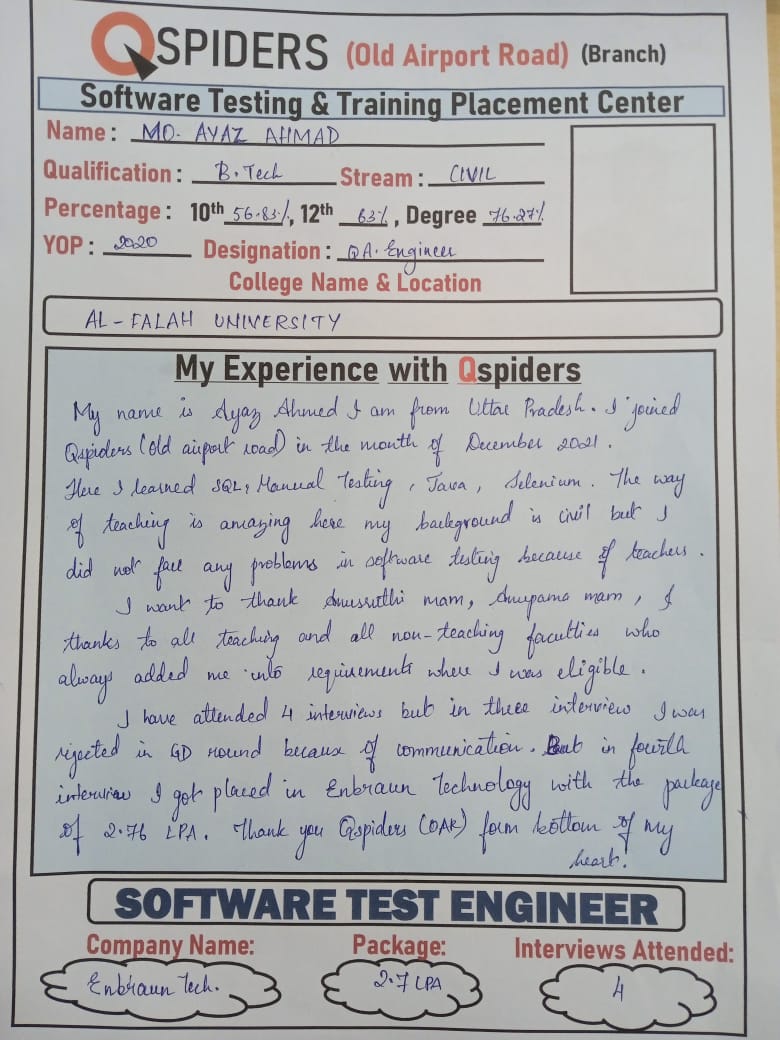 QSPIDERS (Old Airport Road) (Branch)
Software Testing & Training Placement Center
Name : MO. AYAZ AHMAD
Qualification : B.Tech Stream : CIVIL
Percentage : 10th 56.83%, 12th 63%, Degree 76.27%
YOP : 2020 Designation : QA. Engineer
College Name & Location
AL-FALAH UNIVERSITY
My Experience with Qspiders
My name is Ayaz Ahmed I am from Uttar Pradesh. I joined
Qspiders (old airport road) in the month of December 2021.
Here I learned SQL, Manual Testing, Java, Selenium. The way
of teaching is amazing here my background is civil but I
did not face any problems in software testing because of teachers.
I want to thank Anussuthi mam, Anupama mam, I
thanks to all teaching and all non-teaching faculties who
always added me into requirements where I was eligible.
I have attended 4 interviews but in three interview I was
rejected in GD round because of communication. But in fourth
interview I got placed in Enbraun Technology with the package
of 2.76 LPA. Thank you Qspiders (OAR) form bottom of my
heart.
SOFTWARE TEST ENGINEER
Company Name: Package: Interviews Attended:
Enbraun Tech. 2.7 LPA 4